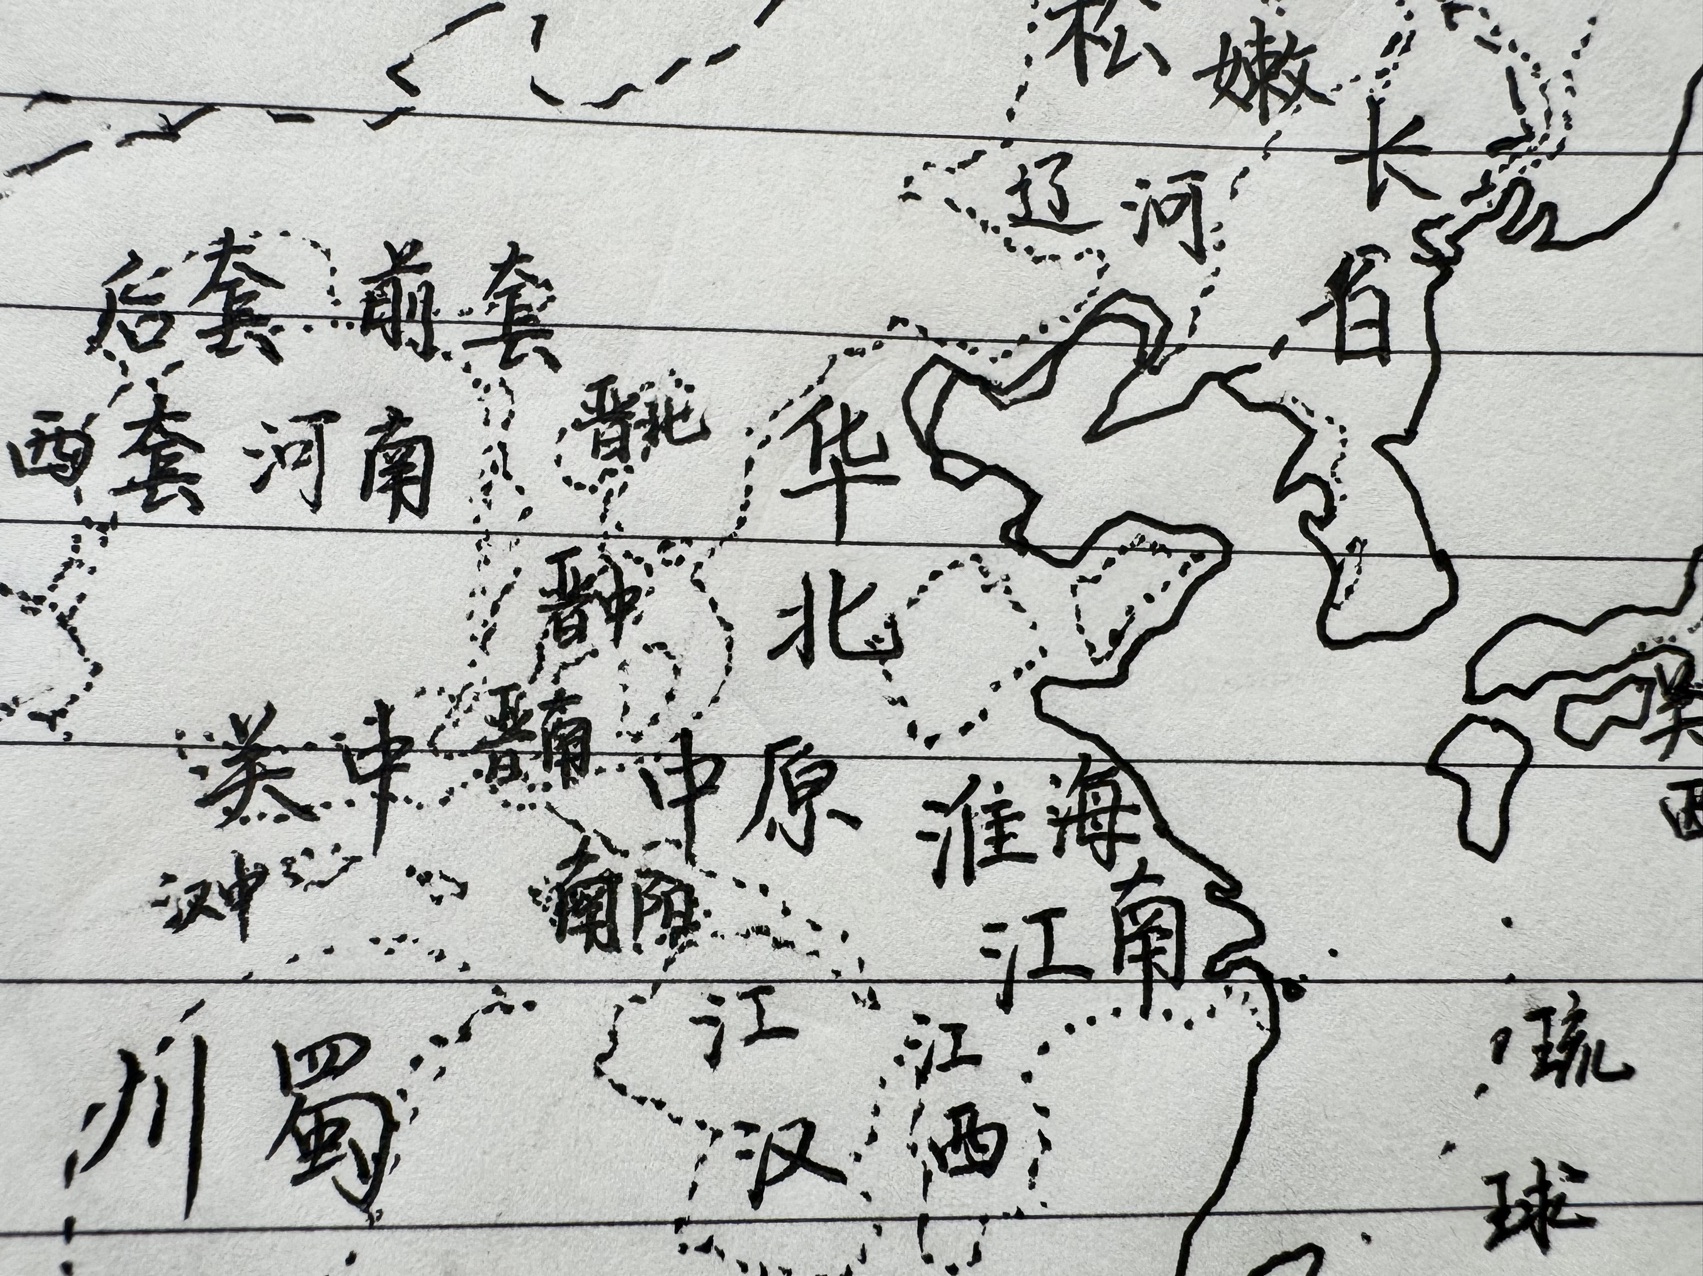 松嫩
长白
辽河
后套 前套
西套 河南
晋北
华北
晋中
关中
晋南
中原
淮海
汉中
南阳
江南
川蜀
江汉
江西
琉球